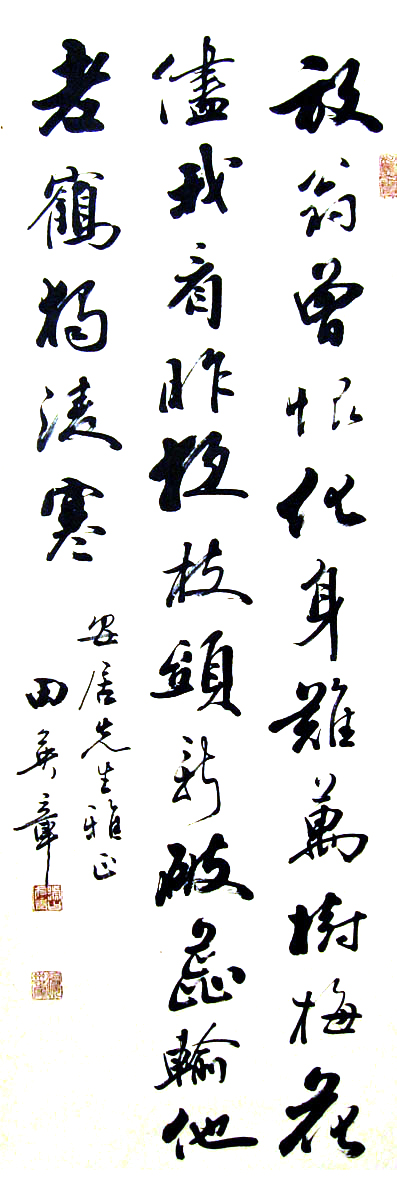 放翁曾恨化身難萬樹梅花
儘我看昨夜枝頭新破蕊輸他
老鶴獨淩寒
安居先生雅正
田英章